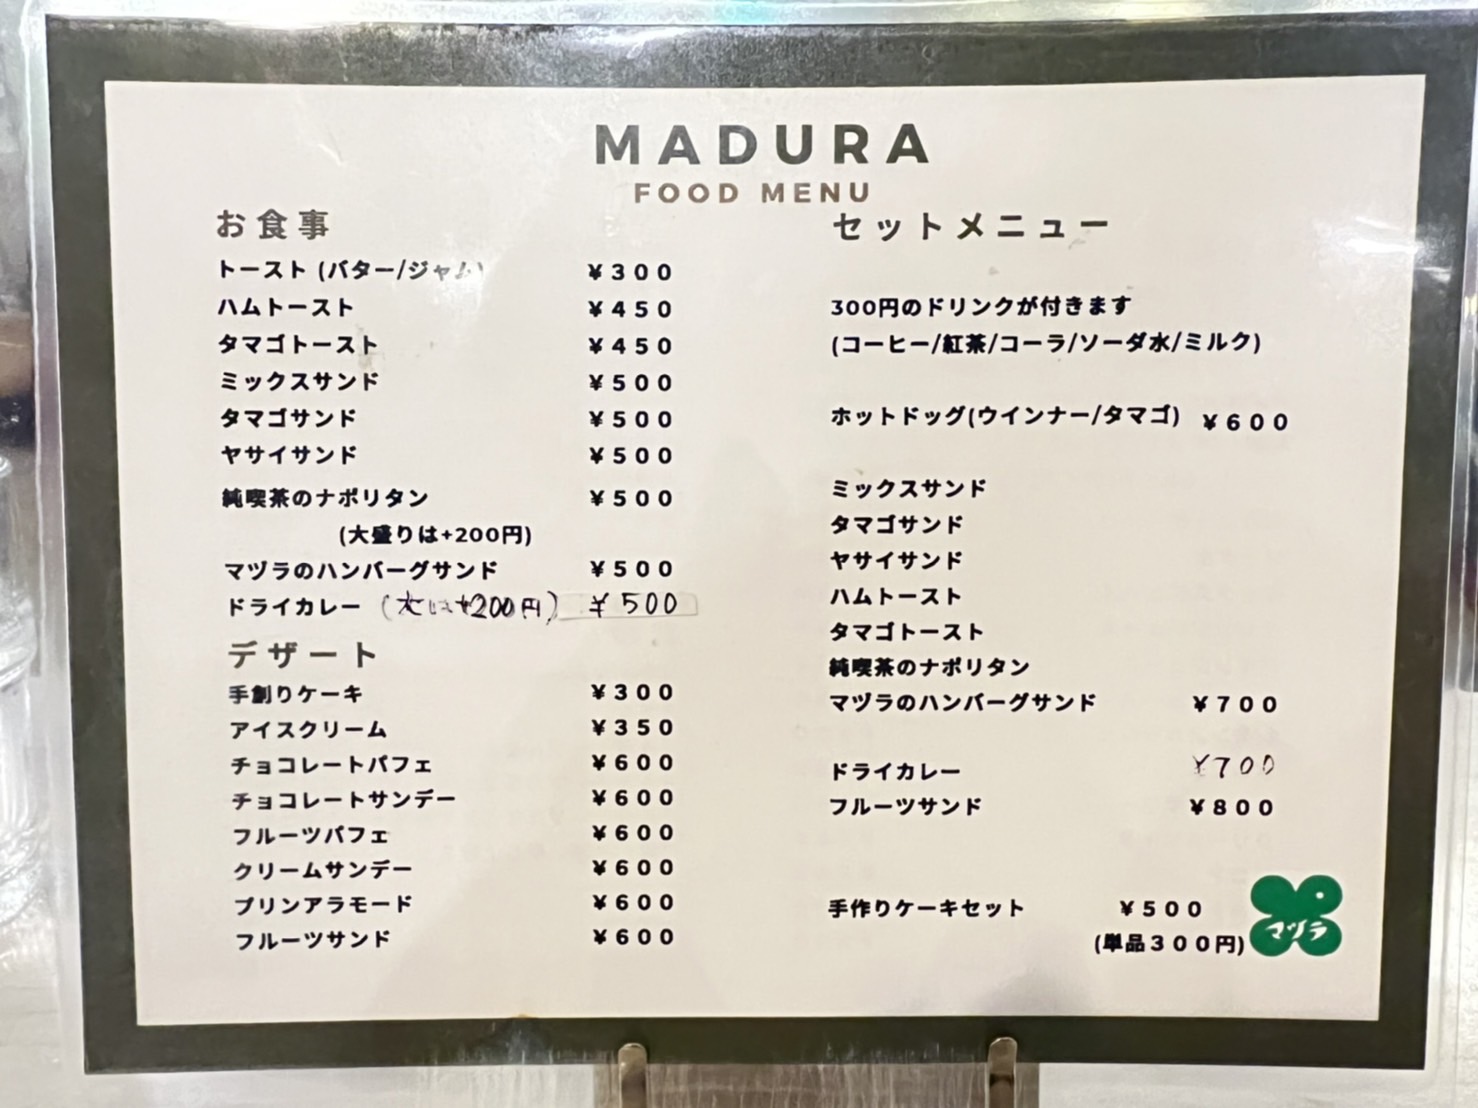 MADURA
FOOD MENU
お食事
トースト (バター/ジャム) ¥300
ハムトースト ¥450
タマゴトースト ¥450
ミックスサンド ¥500
タマゴサンド ¥500
ヤサイサンド ¥500
純喫茶のナポリタン ¥500
(大盛りは+200円)
マヅラのハンバーグサンド ¥500
ドライカレー (大は+200円) ¥500
デザート
手創りケーキ ¥300
アイスクリーム ¥350
チョコレートパフェ ¥600
チョコレートサンデー ¥600
フルーツパフェ ¥600
クリームサンデー ¥600
プリンアラモード ¥600
フルーツサンド ¥600
セットメニュー
300円のドリンクが付きます
(コーヒー/紅茶/コーラ/ソーダ水/ミルク)
ホットドッグ(ウインナー/タマゴ) ¥600
ミックスサンド
タマゴサンド
ヤサイサンド
ハムトースト
タマゴトースト
純喫茶のナポリタン
マヅラのハンバーグサンド ¥700
ドライカレー ¥700
フルーツサンド ¥800
手作りケーキセット ¥500
(単品300円)
マヅラ